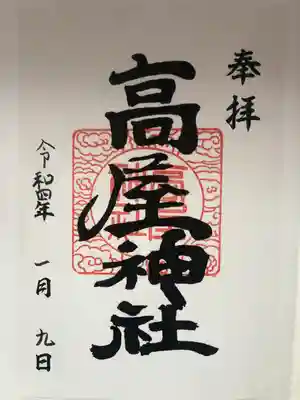 奉拝
高屋神社
令和四年 一月 九日